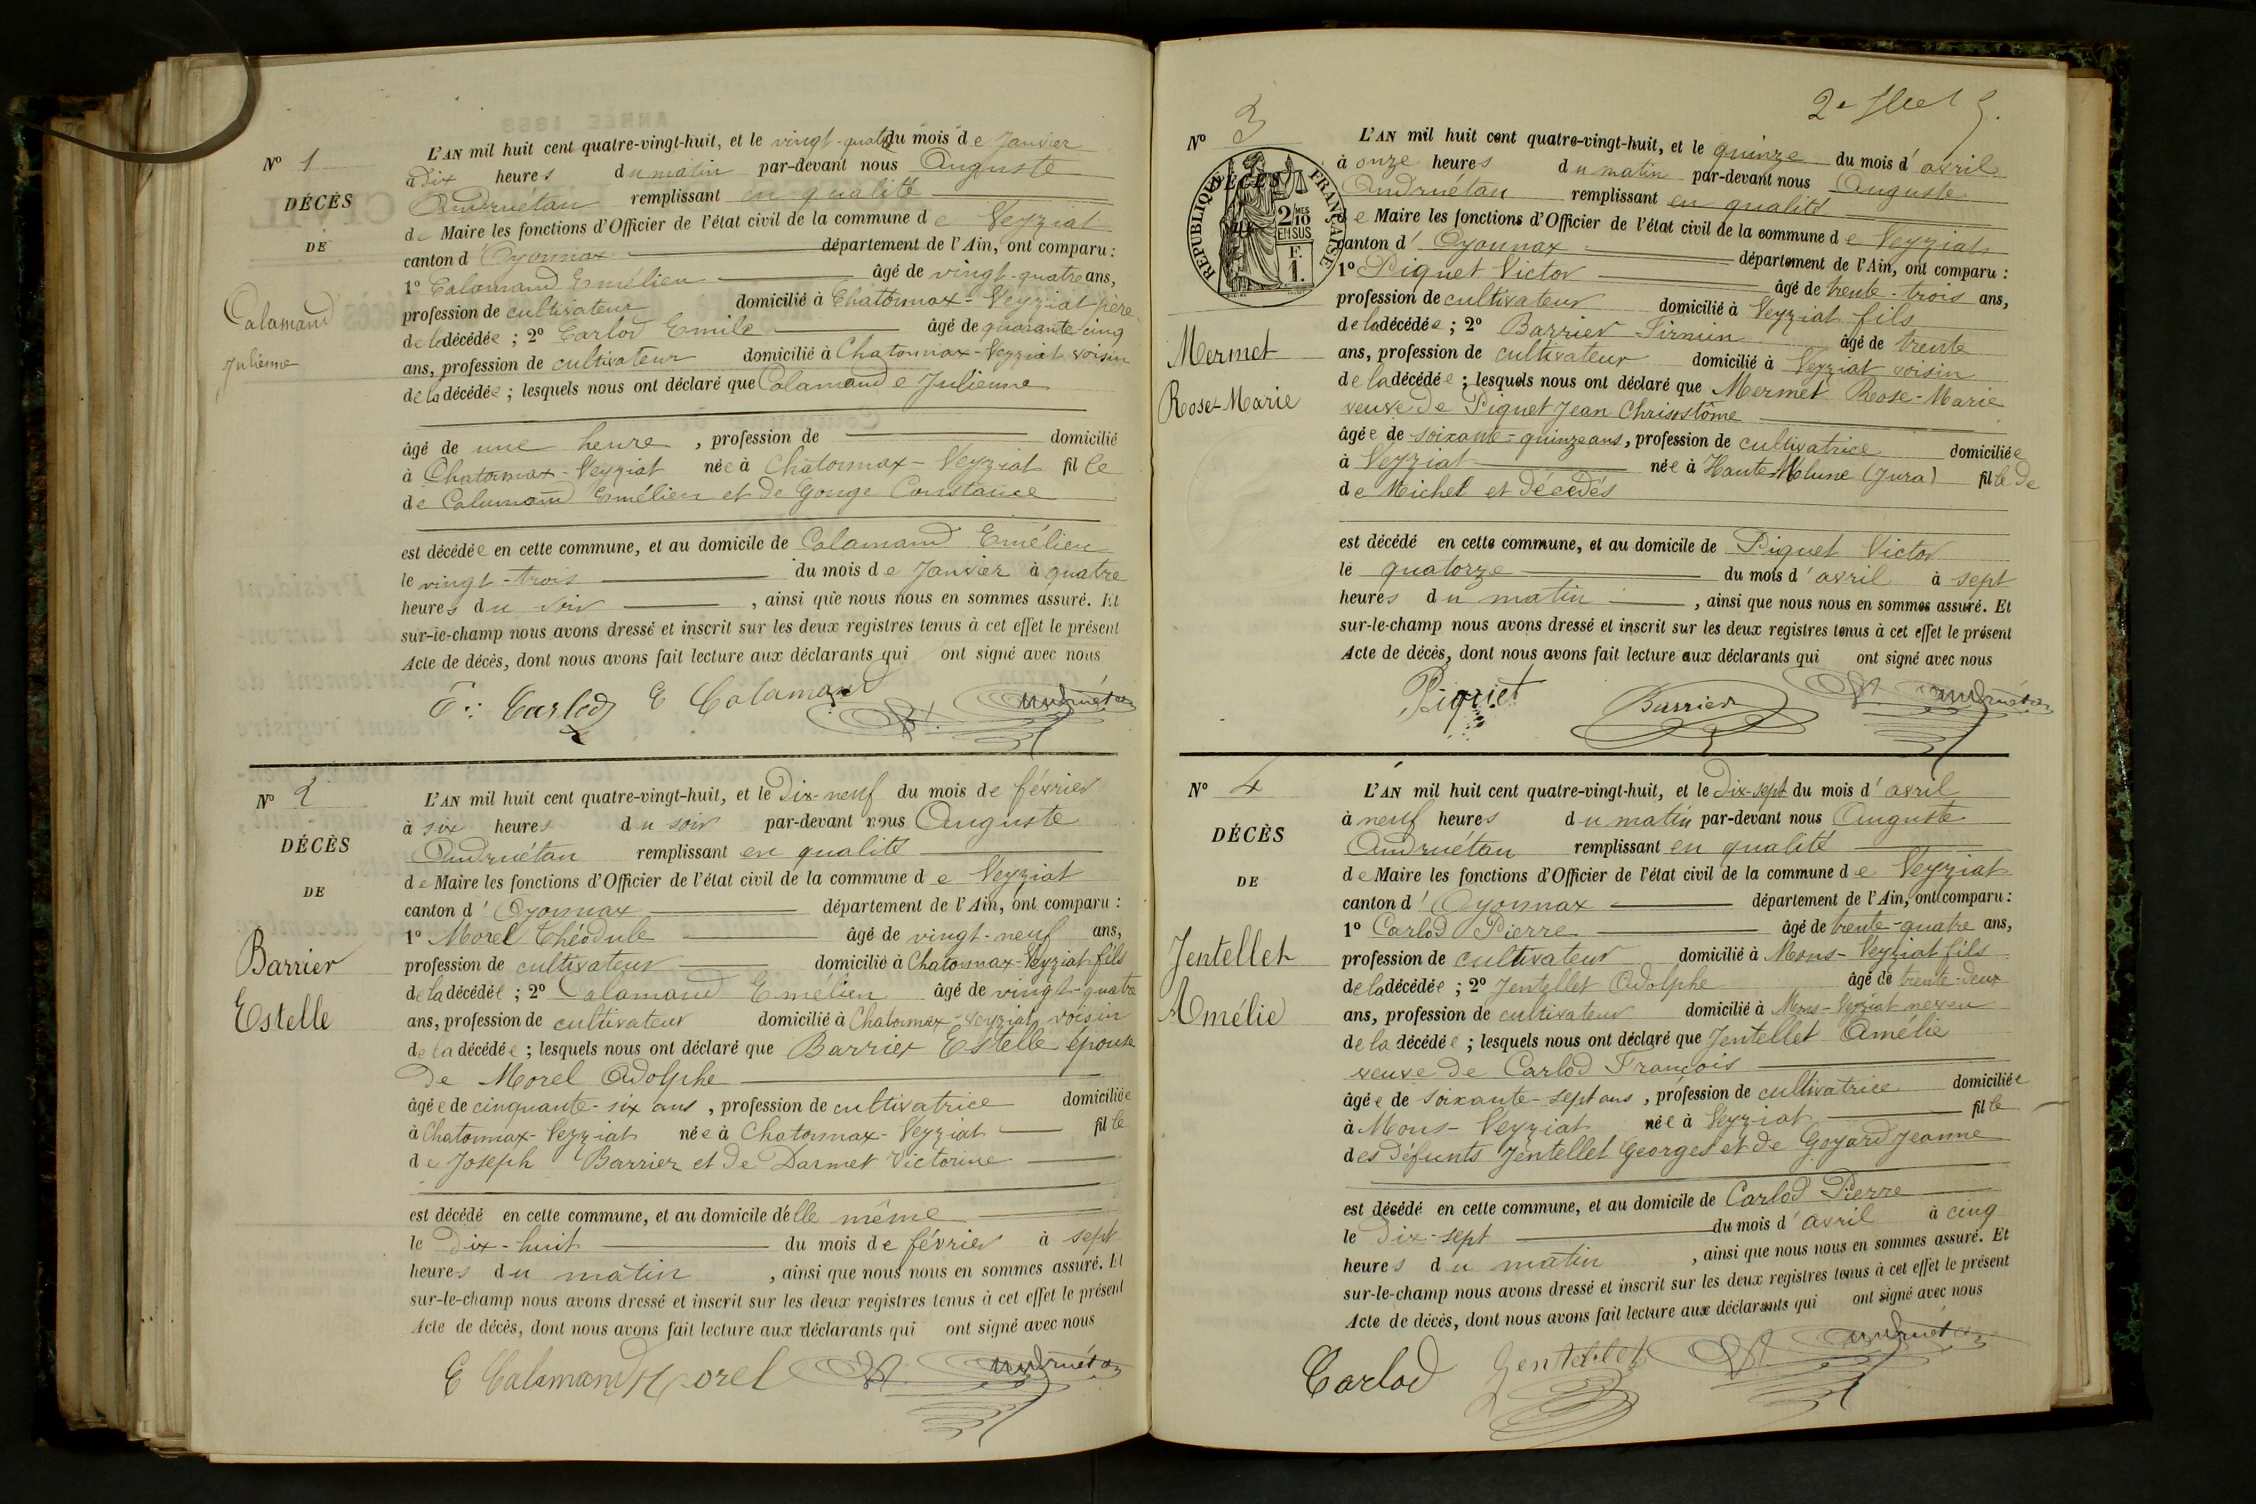 Nº 1
DÉCÈS
DE
Calamand
Julienne
L'AN mil huit cent quatre-vingt-huit, et le vingt-quatre du mois de Janvier
à dix heures du matin par-devant nous Auguste
Andruétan remplissant en qualité
de Maire les fonctions d'Officier de l'état civil de la commune de Veyziat
canton d'Oyonnax département de l'Ain, ont comparu :
1º Calamand Emélien âgé de vingt-quatre ans,
profession de cultivateur domicilié à Chatonnax-Veyziat père
de la décédée ; 2º Carlod Emile âgé de quarante-cinq
ans, profession de cultivateur domicilié à Chatonnax-Veyziat voisin
de la décédée ; lesquels nous ont déclaré que Calamand e Julienne
âgé de une heure , profession de domicilié
à Chatonnax-Veyziat née à Chatonnax-Veyziat fille
de Calamand Emélien et de Gouge Constance
est décédée en cette commune, et au domicile de Calamand Emélien
le vingt-trois du mois de Janvier à quatre
heures du soir , ainsi que nous nous en sommes assuré. Et
sur-le-champ nous avons dressé et inscrit sur les deux registres tenus à cet effet le présent
Acte de décès, dont nous avons fait lecture aux déclarants qui ont signé avec nous
Carlod E Calamand Andruétan
Nº 2
DÉCÈS
DE
Barrier
Estelle
L'AN mil huit cent quatre-vingt-huit, et le Dix-neuf du mois de février
à six heures du soir par-devant nous Auguste
Andruétan remplissant en qualité
de Maire les fonctions d'Officier de l'état civil de la commune de Veyziat
canton d'Oyonnax département de l'Ain, ont comparu :
1º Morel Théodule âgé de vingt-neuf ans,
profession de cultivateur domicilié à Chatonnax-Veyziat fils
de la décédée ; 2º Calamand Emelien âgé de vingt-quatre
ans, profession de cultivateur domicilié à Chatonnax-Veyziat voisin
de la décédée ; lesquels nous ont déclaré que Barrier Estelle épouse
De Morel Adolphe
âgée de cinquante-six ans , profession de cultivatrice domiciliée
à Chatonnax-Veyziat née à Chatonnax-Veyziat fille
de Joseph Barrier et de Darmet Victorine
est décédé en cette commune, et au domicile d'elle même
le Dix-huit du mois de février à sept
heures du matin , ainsi que nous nous en sommes assuré. Et
sur-le-champ nous avons dressé et inscrit sur les deux registres tenus à cet effet le présent
Acte de décès, dont nous avons fait lecture aux déclarants qui ont signé avec nous
E Calamand Morel Andruétan
Nº 3
DÉCÈS
RÉPUBLIQUE FRANÇAISE
2/10 MES
EN SUS
F.
1.
Mermet
Rose-Marie
L'AN mil huit cent quatre-vingt-huit, et le quinze du mois d'avril
à onze heures du matin par-devant nous Auguste
Andruétan remplissant en qualité
de Maire les fonctions d'Officier de l'état civil de la commune de Veyziat
canton d'Oyonnax département de l'Ain, ont comparu :
1º Piquet Victor âgé de trente-trois ans,
profession de cultivateur domicilié à Veyziat fils
de la décédée ; 2º Barrier Firmin âgé de trente
ans, profession de cultivateur domicilié à Veyziat voisin
de la décédée ; lesquels nous ont déclaré que Mermet Rose-Marie
veuve de Piquet Jean Chrisostôme
âgée de soixante-quinze ans, profession de cultivatrice domiciliée
à Veyziat née à Haute Molune (Jura) fille de
de Michel et décédés
est décédé en cette commune, et au domicile de Piquet Victor
le quatorze du mois d'avril à sept
heures du matin , ainsi que nous nous en sommes assuré. Et
sur-le-champ nous avons dressé et inscrit sur les deux registres tenus à cet effet le présent
Acte de décès, dont nous avons fait lecture aux déclarants qui ont signé avec nous
Piquet Barrier Andruétan
Nº 4
DÉCÈS
DE
Jentellet
Amélie
L'AN mil huit cent quatre-vingt-huit, et le Dix-sept du mois d'avril
à neuf heures du matin par-devant nous Auguste
Andruétan remplissant en qualité
de Maire les fonctions d'Officier de l'état civil de la commune de Veyziat
canton d'Oyonnax département de l'Ain, ont comparu :
1º Carlod Pierre âgé de trente-quatre ans,
profession de cultivateur domicilié à Mons-Veyziat fils
de la décédée ; 2º Jentellet Adolphe âgé de trente-deux
ans, profession de cultivateur domicilié à Mons-Veyziat neveu
de la décédée ; lesquels nous ont déclaré que Jentellet Amélie
veuve de Carlod François
âgée de soixante-sept ans , profession de cultivatrice domiciliée
à Mons-Veyziat née à Veyziat fille
des défunts Jentellet Georges et de Goyard Jeanne
est décédé en cette commune, et au domicile de Carlod Pierre
le Dix-sept du mois d'avril à cinq
heures du matin , ainsi que nous nous en sommes assuré. Et
sur-le-champ nous avons dressé et inscrit sur les deux registres tenus à cet effet le présent
Acte de décès, dont nous avons fait lecture aux déclarants qui ont signé avec nous
Carlod Jentellet Andruétan